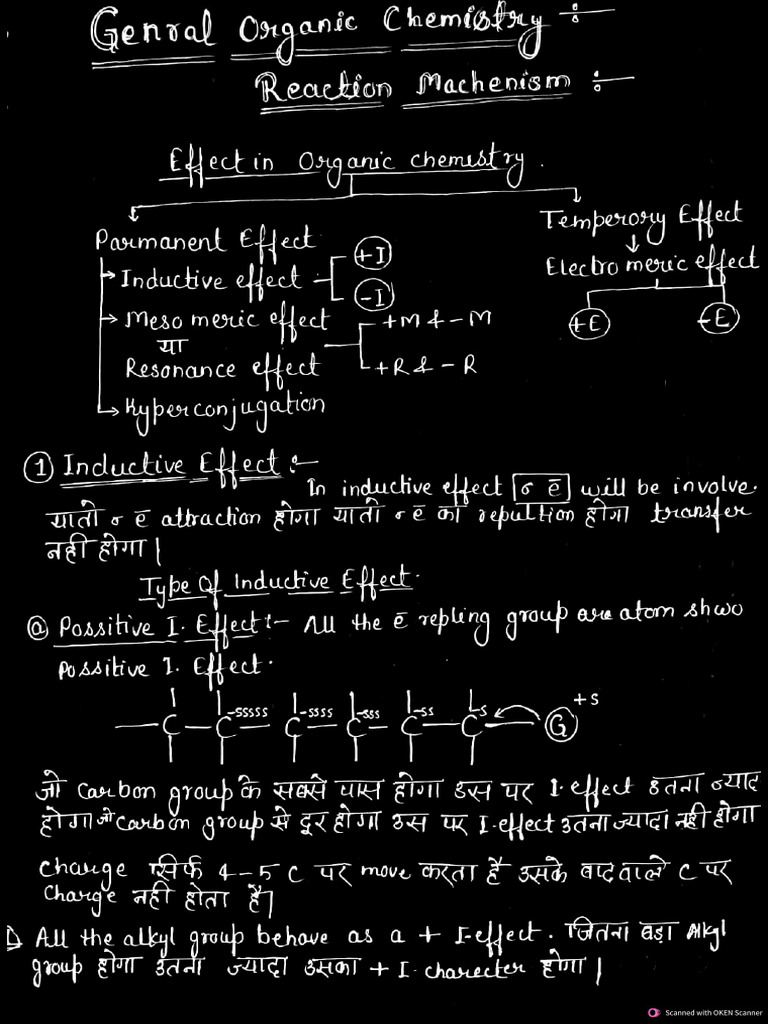 Genral Organic Chemistry :-
Reaction Machenism :-
Effect in Organic chemistry.
Parmanent Effect
Temperory Effect
→ Inductive effect
+I
-I
Electro meric effect
+E
-E
→ Meso meric effect
या
Resonance effect
+M & - M
+R & - R
→ Hyperconjugation
① Inductive Effect :-
In inductive effect σ ē will be involve.
यातो σ ē attraction होगा यातो σ ē का repultion होगा transfer
नही होगा।
Type Of Inductive Effect.
ⓐ Possitive I. Effect :- All the ē repling group are atom shwo
Possitive I. Effect.
— C — C -sssss C -ssss C -sss C -ss C -s G +s
जो carbon group के सबसे पास होगा उस पर I.effect उतना ज्याद
होगा जो carbon group से दूर होगा उस पर I.effect उतना ज्यादा नही होगा
charge सिर्फ 4-5 C पर move करता है उसके बाद वाले C पर
charge नही होता है।
All the alkyl group behave as a + I-effect. जितना बड़ा Alkyl
group होगा उतना ज्यादा उसका + I. charecter होगा।
Scanned with OKEN Scanner